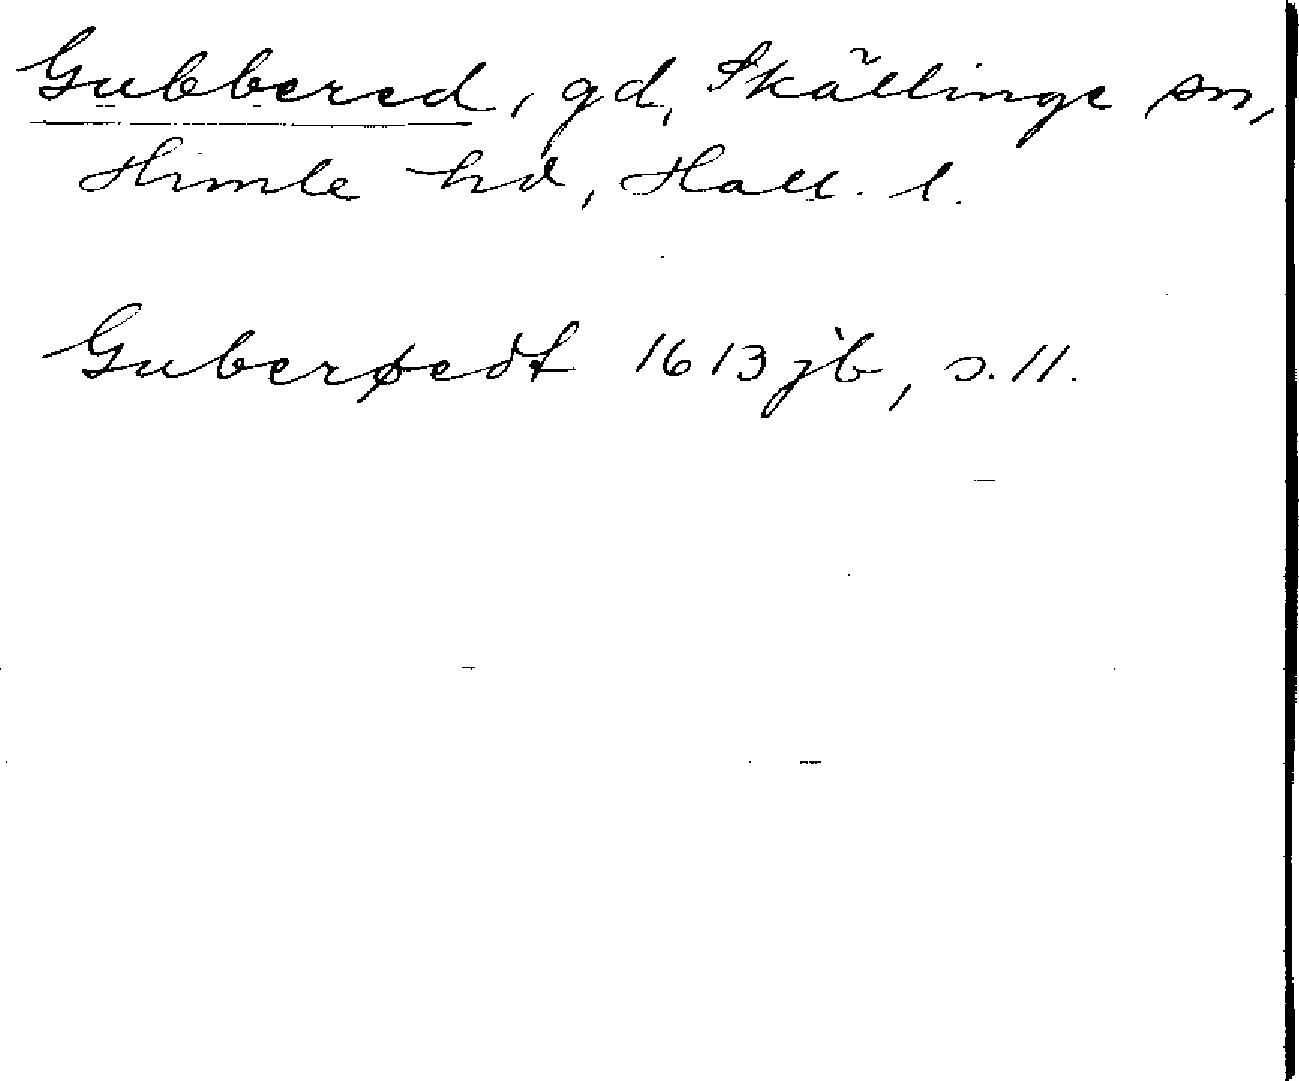 Gubbered, gd, Skällinge sn,
Himle hd, Hall. l.
Guberøedt 1613 jb, s. 11.